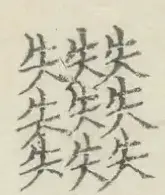 失失失
失失失
失失失